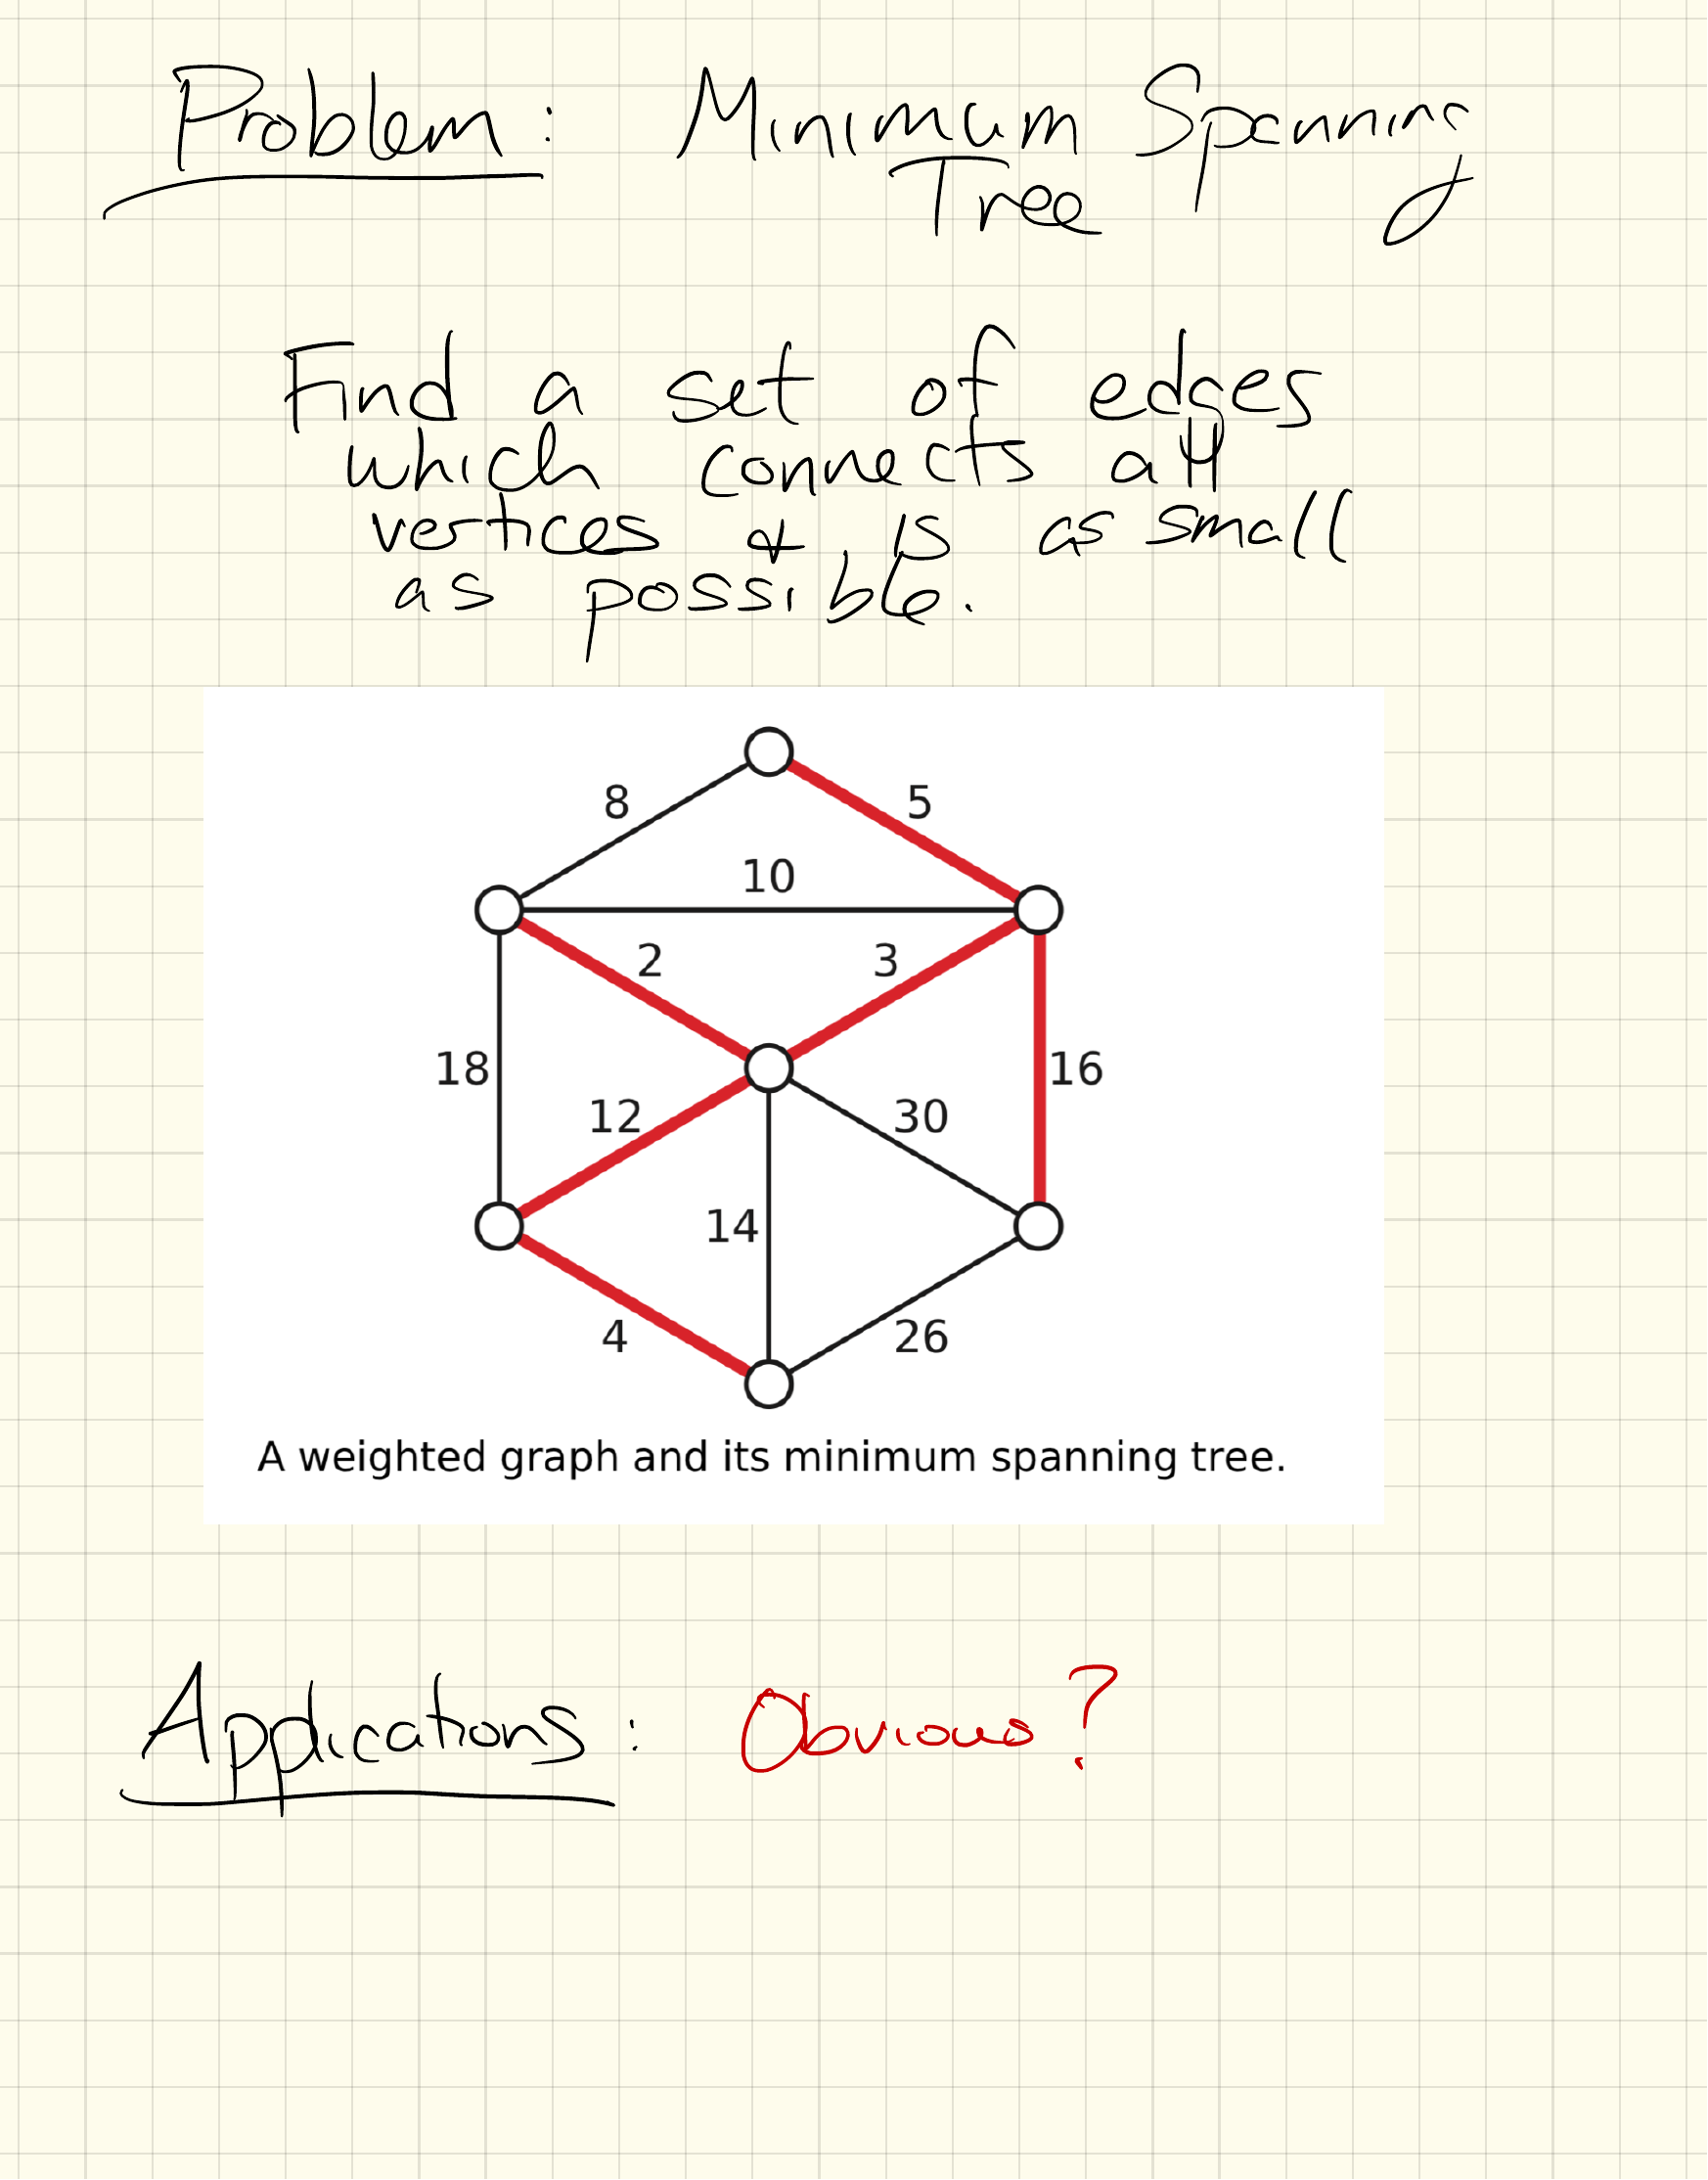 Problem: Minimum Spanning
Tree
Find a set of edges
which connects all
vertices & is as small
as possible.
8 5
10
2 3
18 16
12 30
14
4 26
A weighted graph and its minimum spanning tree.
Applications: Obvious?